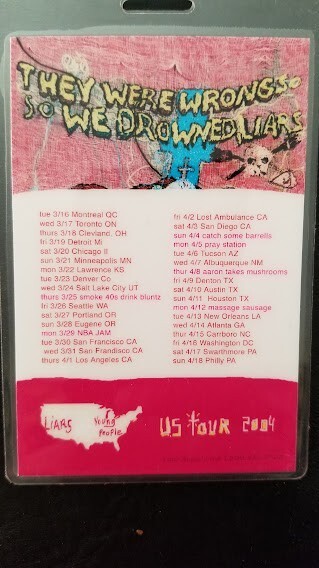 THEY WERE WRONG SO
SO WE DROWNED LIARS
tue 3/16 Montreal QC
wed 3/17 Toronto ON
thurs 3/18 Clevland, OH
fri 3/19 Detroit Mi
sat 3/20 Chicago Il
sun 3/21 Minneapolis MN
mon 3/22 Lawrence KS
tue 3/23 Denver Co
wed 3/24 Salt Lake City UT
thurs 3/25 smoke 40s drink bluntz
fri 3/26 Seattle WA
sat 3/27 Portland OR
sun 3/28 Eugene OR
mon 3/29 NBA JAM
tue 3/30 San Francisco CA
wed 3/31 San Frandisco CA
thurs 4/1 Los Angeles CA
fri 4/2 Lost Ambulance CA
sat 4/3 San Diego CA
sun 4/4 catch some barrells
mon 4/5 pray station
tue 4/6 Tucson AZ
wed 4/7 Albuquerque NM
thur 4/8 aaron takes mushrooms
fri 4/9 Denton TX
sat 4/10 Austin TX
sun 4/11 Houston TX
mon 4/12 massage sausage
tue 4/13 New Orleans LA
wed 4/14 Atlanta GA
thu 4/15 Carrboro NC
fri 4/16 Washington DC
sat 4/17 Swarthmore PA
sun 4/18 Philly PA
LIARS
Young
People
US TOUR 2004